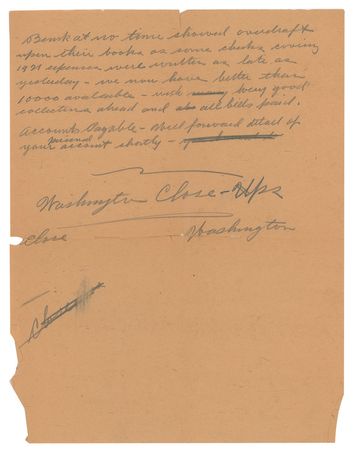 Bank at no time showed overdraft
upon their books as some checks covering
1921 expenses were written as late as
yesterday - we now have better than
10000 available - with being good
collections ahead and all bills paid.
Accounts Payable - Will forward detail of
your personal account shortly -
Washington Close-Ups
Close Washington